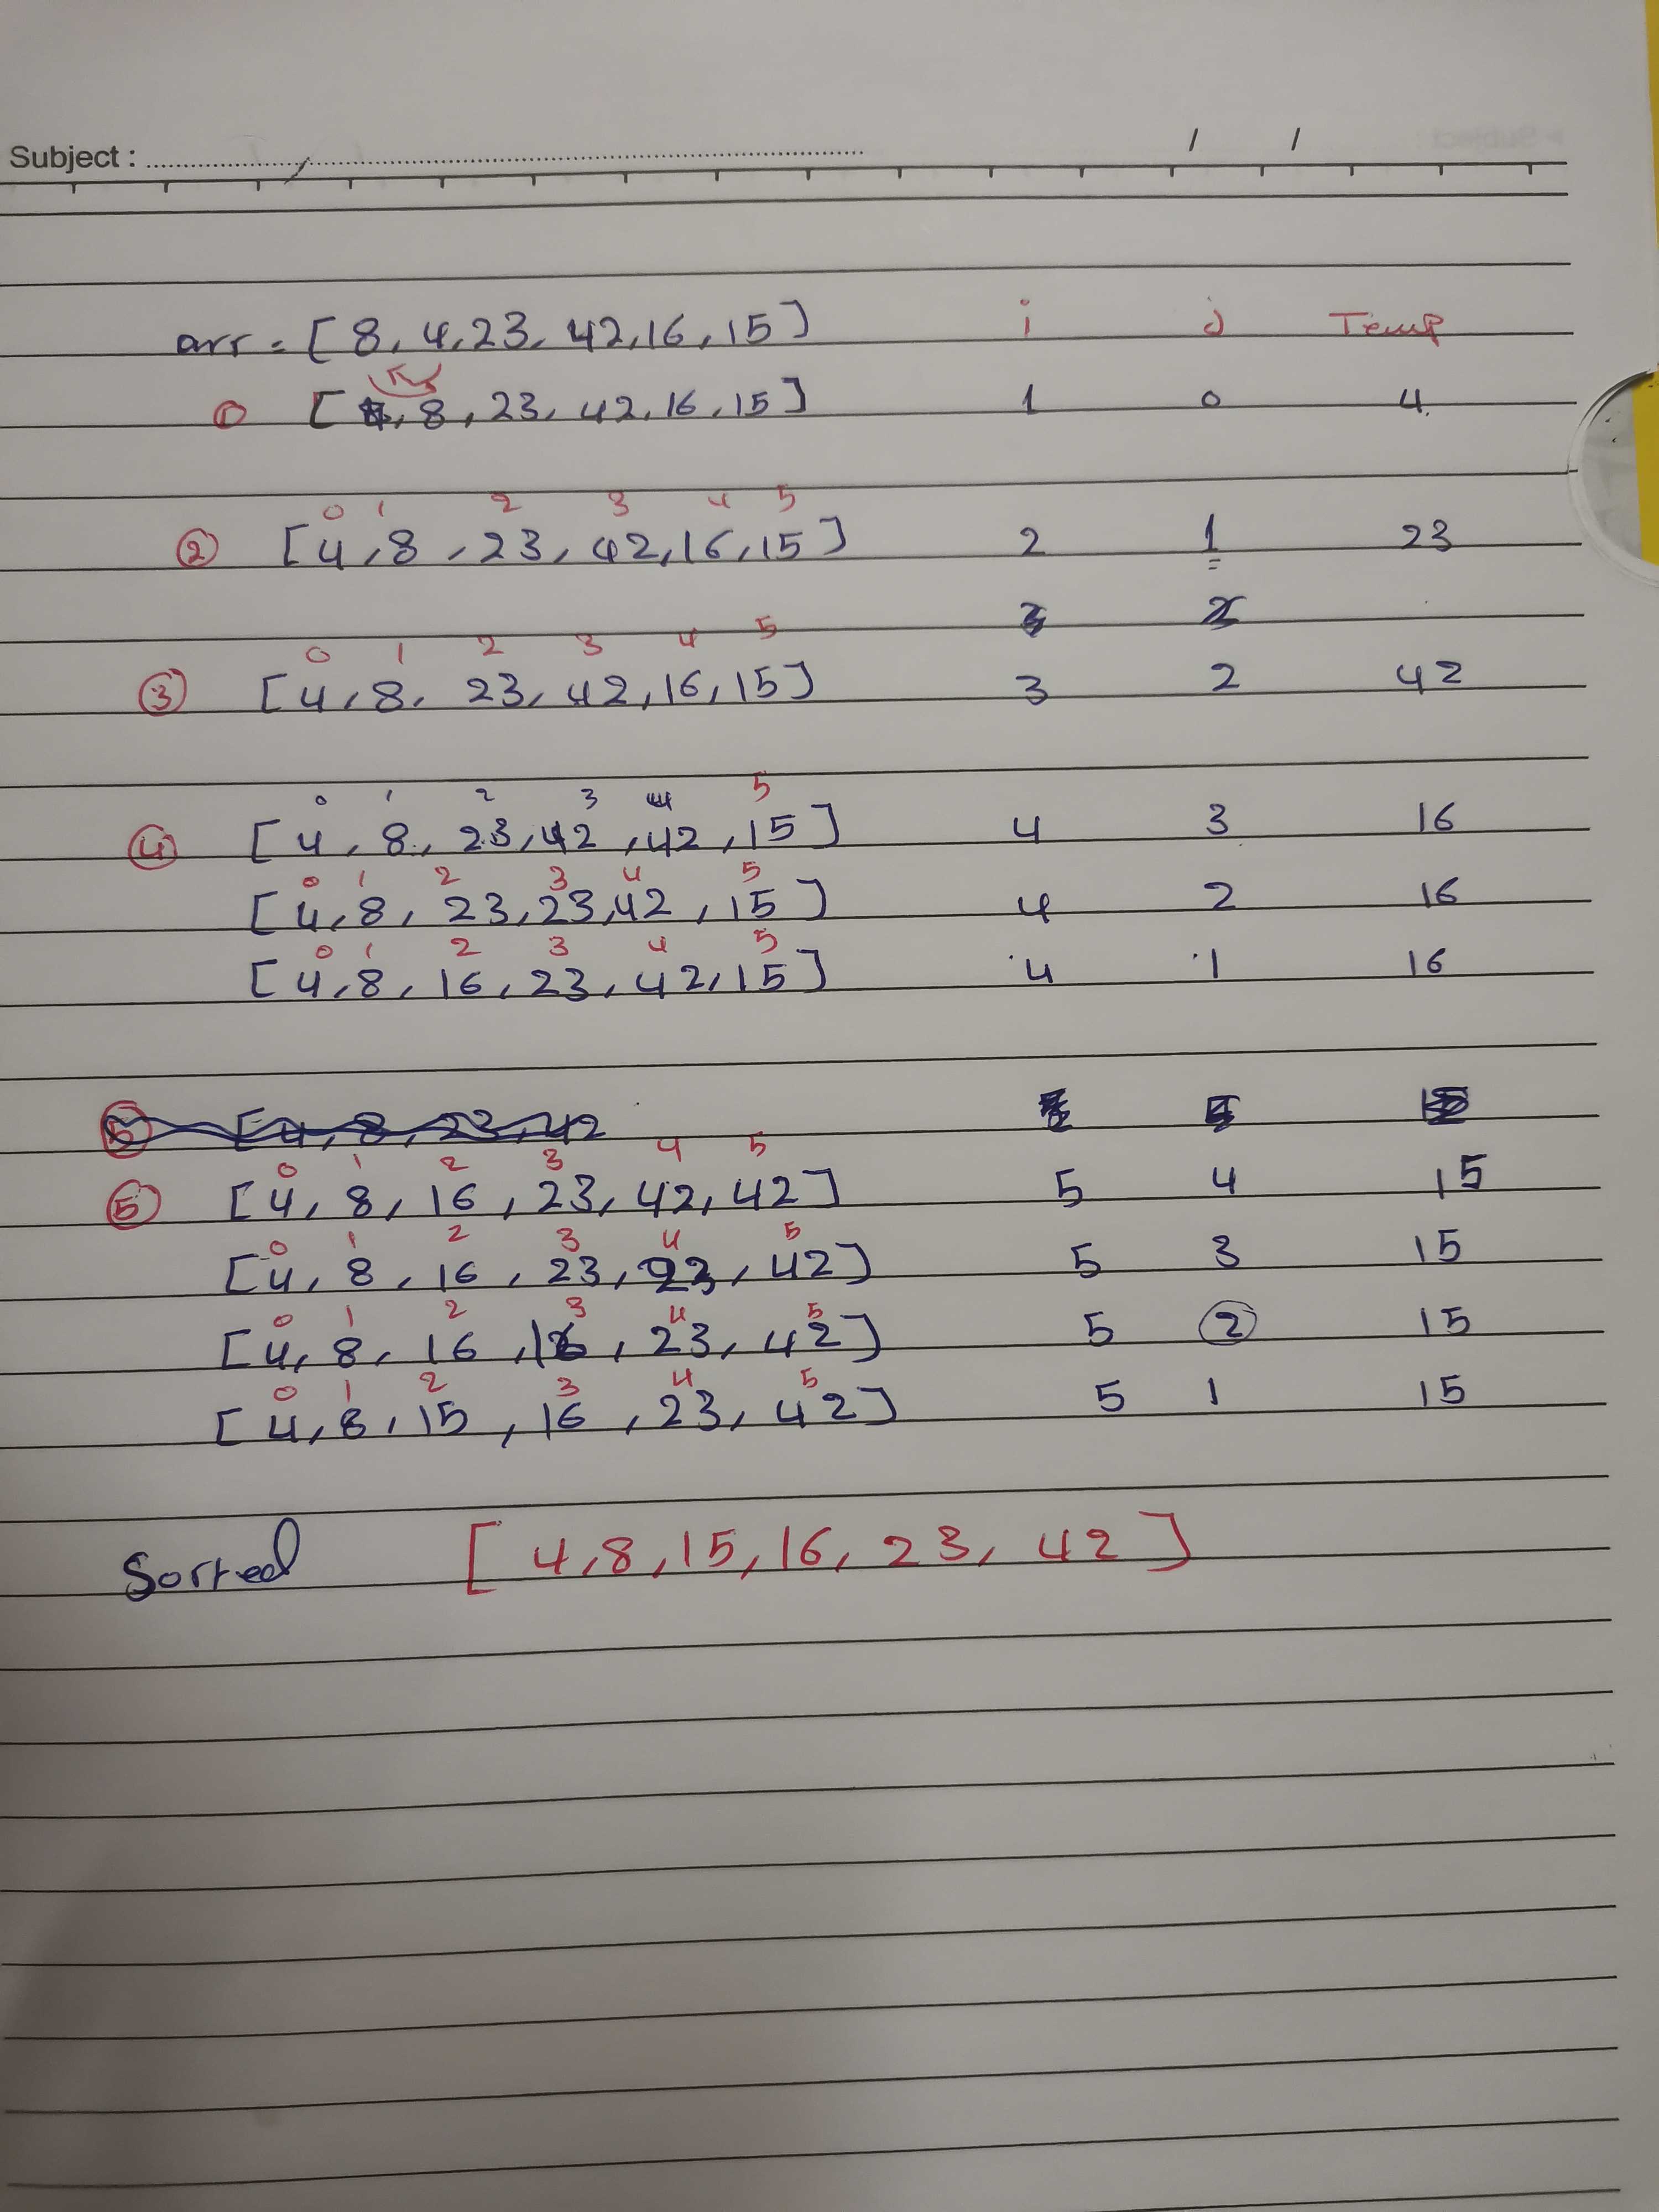 Subject : / /
arr = [ 8, 4, 23, 42, 16, 15 ] i j Temp
① [ 4, 8, 23, 42, 16, 15 ] 1 0 4
0 1 2 3 4 5
② [ 4, 8, 23, 42, 16, 15 ] 2 1 23
0 1 2 3 4 5
③ [ 4, 8, 23, 42, 16, 15 ] 3 2 42
0 1 2 3 4 5
④ [ 4, 8, 23, 42, 42, 15 ] 4 3 16
0 1 2 3 4 5
[ 4, 8, 23, 23, 42, 15 ] 4 2 16
0 1 2 3 4 5
[ 4, 8, 16, 23, 42, 15 ] 4 1 16
[ 4, 8, 23, 42
0 1 2 3 4 5
⑤ [ 4, 8, 16, 23, 42, 42 ] 5 4 15
0 1 2 3 4 5
[ 4, 8, 16, 23, 23, 42 ] 5 3 15
0 1 2 3 4 5
[ 4, 8, 16, 16, 23, 42 ] 5 ② 15
0 1 2 3 4 5
[ 4, 8, 15, 16, 23, 42 ] 5 1 15
Sorted [ 4, 8, 15, 16, 23, 42 ]